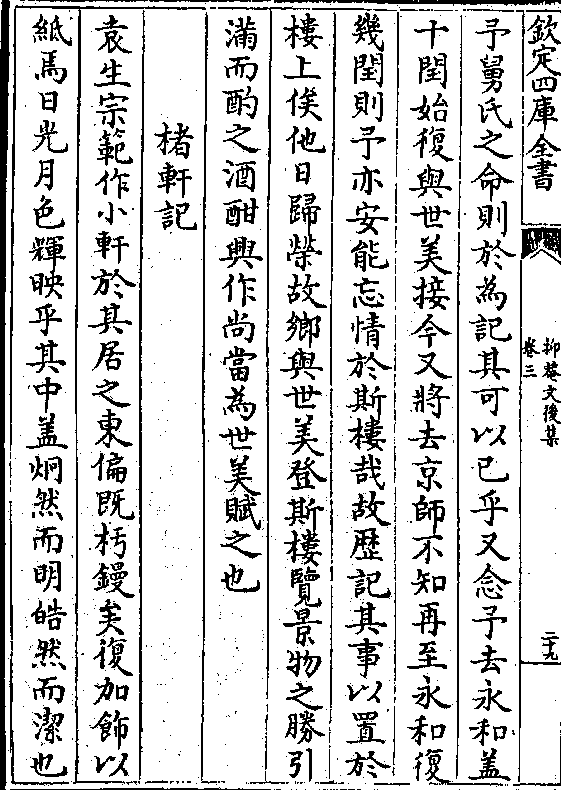 欽定四庫全書
抑菴文後集
卷三
二十九
予舅氏之命則於為記其可以已乎又念予去永和蓋
十閏始復與世美接今又將去京師不知再至永和復
幾閏則予亦安能忘情於斯樓哉故歴記其事以置於
樓上俟他日歸榮故鄉與世美登斯樓覽景物之勝引
滿而酌之酒酣興作尚當為世美賦之也
楮軒記
袁生宗範作小軒於其居之東偏既杇鏝矣復加飾以
紙焉日光月色輝映乎其中盖炯然而明皓然而潔也